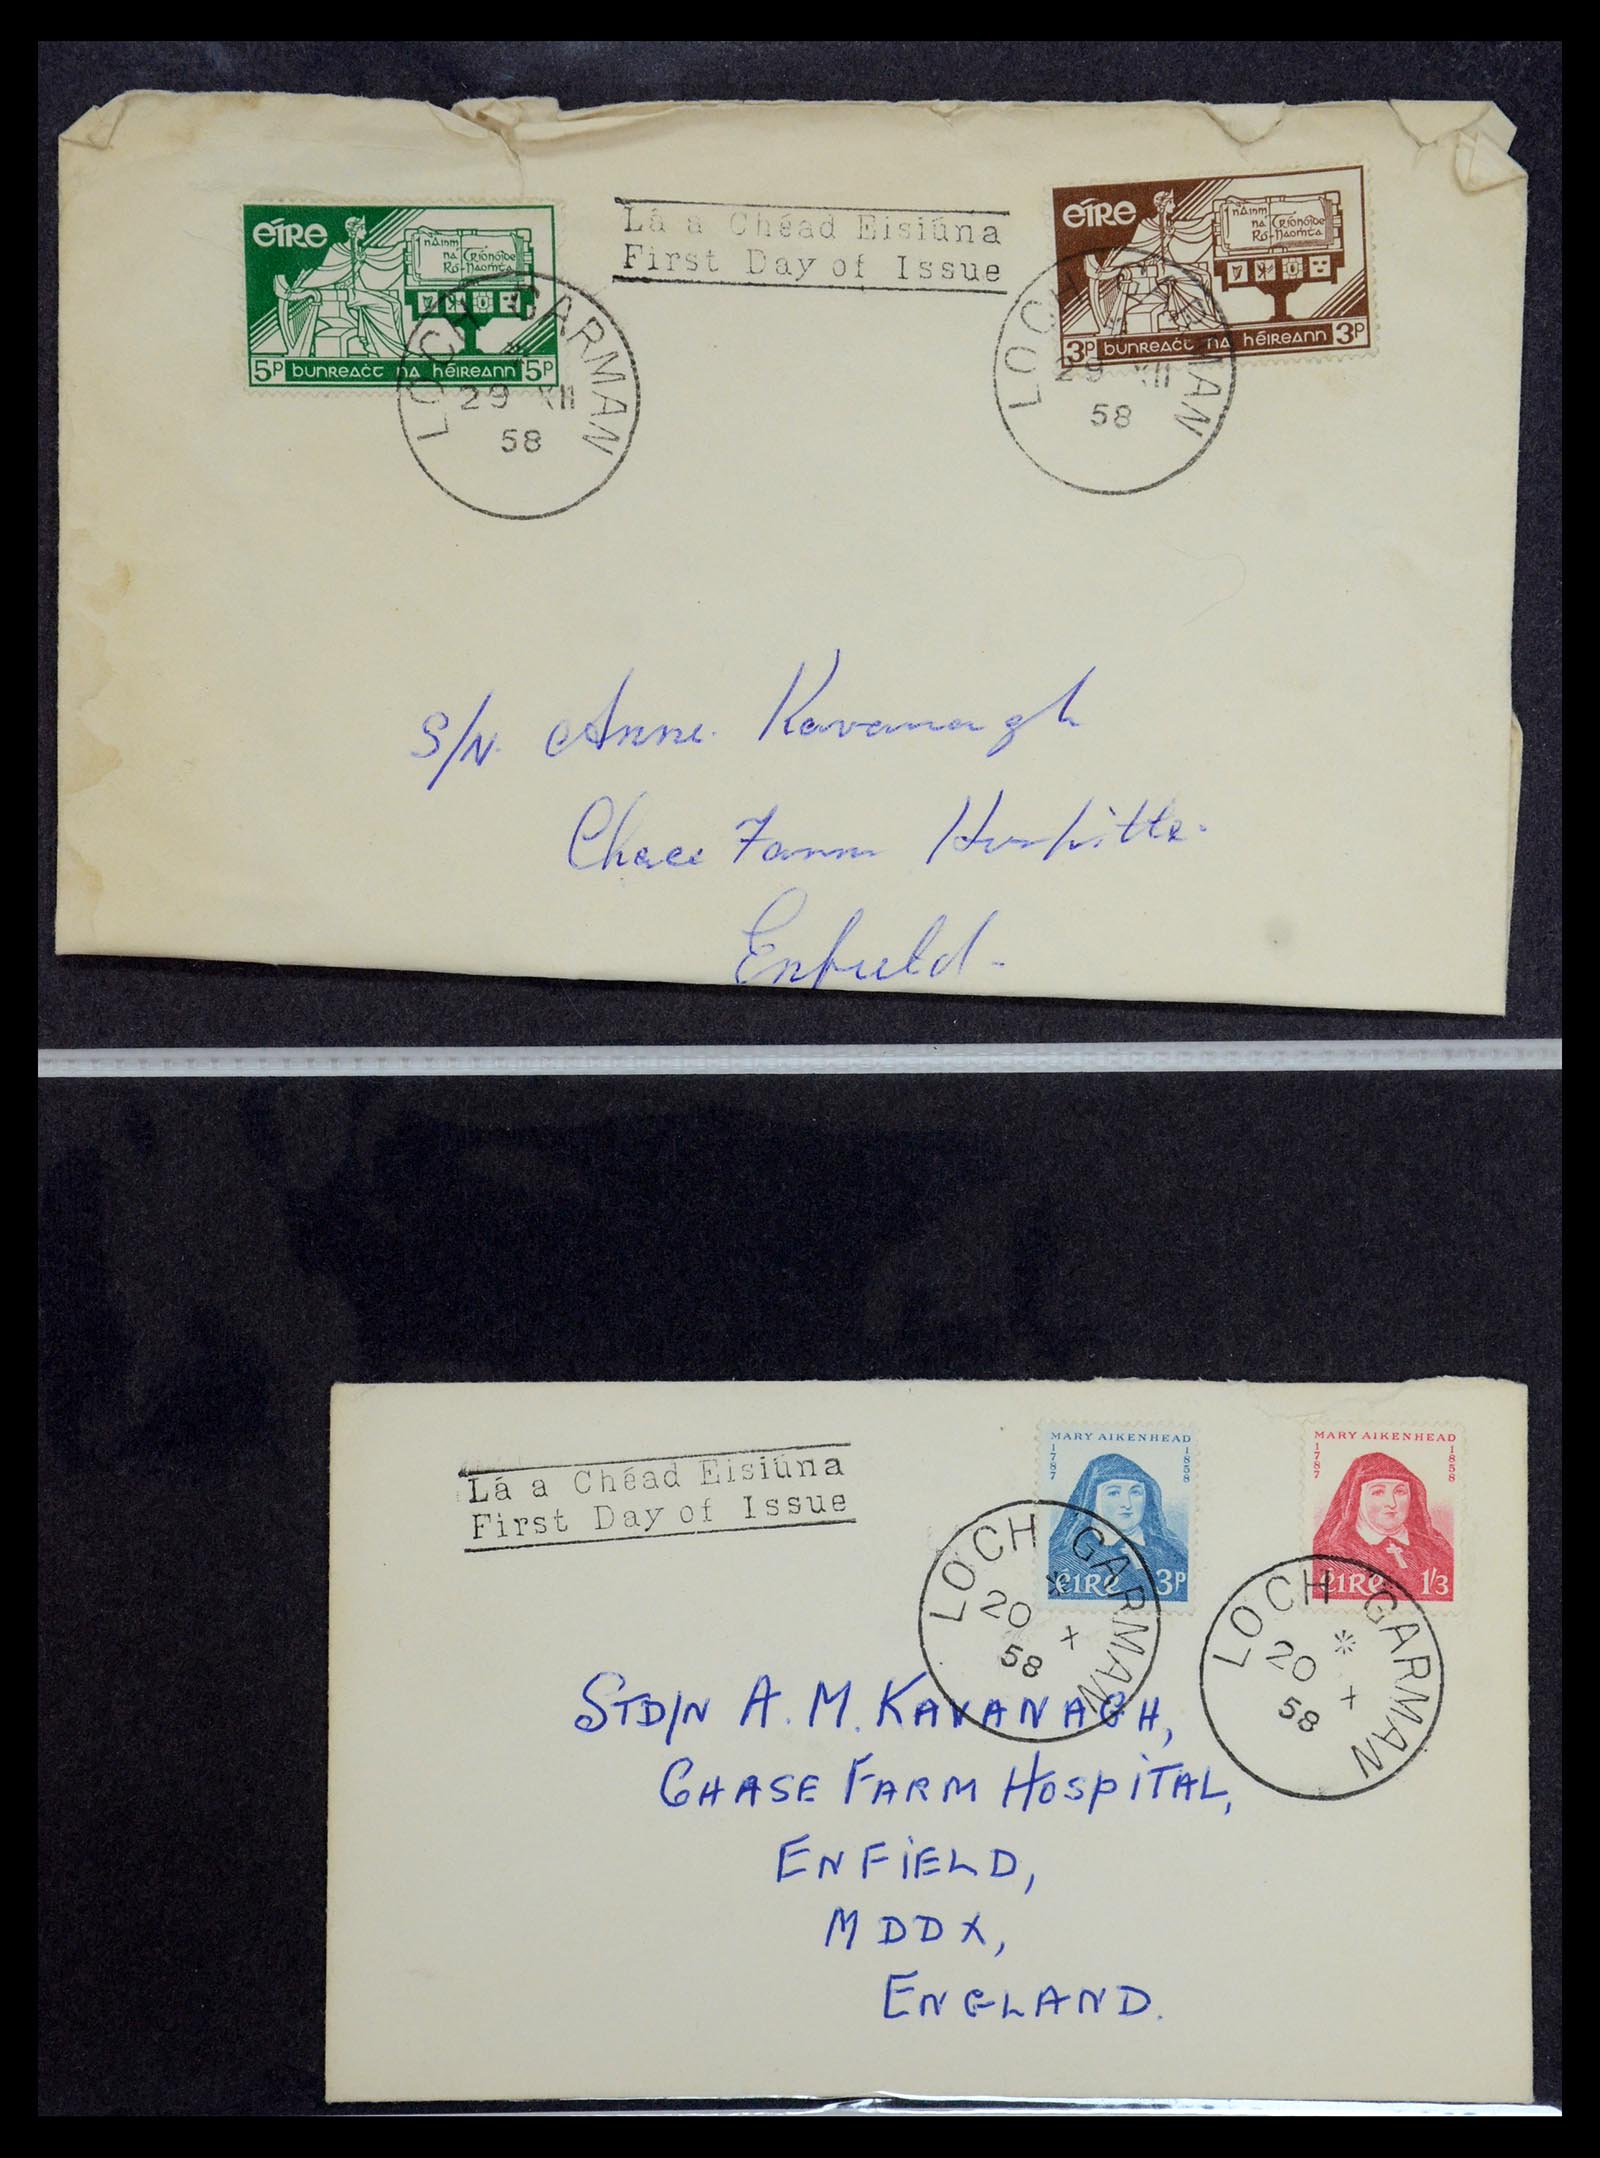 éire
nAinm na Ró- Críonóide Naomta
5p bunreacht na héireann 5p
Lá a Chéad Eisiúna
First Day of Issue
éire
nAinm na Ró- Críonóide Naomta
3p bunreacht na héireann 3p
LOCH GARMAN
29 XII
58
LOCH GARMAN
29 XII
58
S/N. Anne. Kavanagh
Chace Farm
Enfield-
Lá a Chéad Eisiúna
First Day of Issue
MARY AIKENHEAD
1787 1858
éIRe 3P
MARY AIKENHEAD
1787 1858
éIRe 1/3
LOCH GARMAN
20 X
58
LOCH GARMAN
20 X
58
STD/N A. M. KAVANAGH,
CHASE FARM HOSPITAL,
ENFIELD,
MDDX,
ENGLAND.